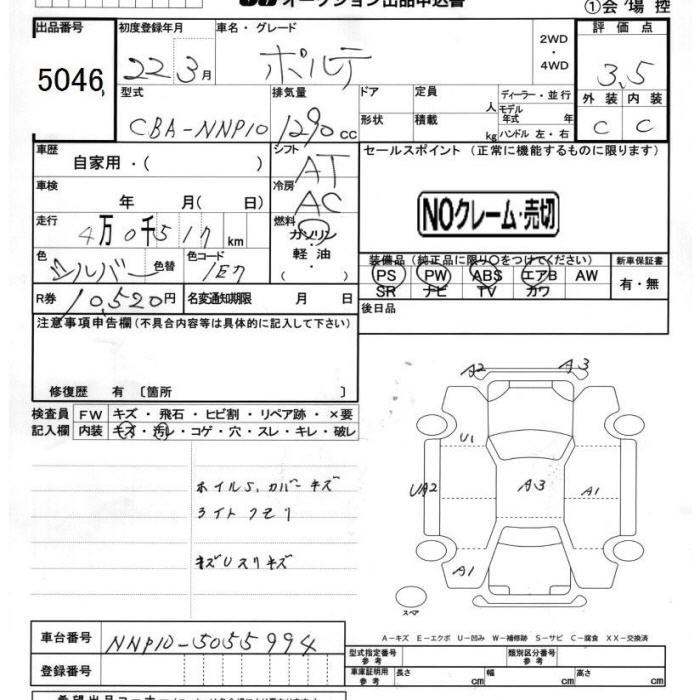 オークション出品申込書
①会場控
出品番号 初度登録年月 車名・グレード 2WD ・ 4WD 評価点
5046 22 3月 ポルテ 3.5
型式 排気量 ドア 定員 人 ディーラー・並行 外装 内装
CBA-NNP10 1290cc 形状 積載 kg モデル年式 年 ハンドル 左・右 C C
車歴 自家用・( ) シフト AT セールスポイント (正常に機能するものに限ります)
車検 年 月( 日) 冷房 AC
NOクレーム・売切
走行 4万0千517km 燃料 ガソリン・軽油・
色 シルバー 色替 色コード 1E7
装備品 (純正品に限り○をつけてください) 新車保証書
PS PW ABS エアB AW 有・無
SR ナビ TV カワ
R券 10,520円 名変通知期限 月 日
後日品
注意事項申告欄(不具合内容等は具体的に記入して下さい)
修復歴 有 〔箇所 〕
検査員 FW キズ・飛石・ヒビ割・リペア跡・×要
記入欄 内装 キズ・汚レ・コゲ・穴・スレ・キレ・破レ
A2 A3
U1
ホイルS,カバーキズ
UA2 A3 A1
ライトクモリ
キズUスリキズ
A1
スペア
A-キズ E-エクボ U-凹み W-補修跡 S-サビ C-腐食 XX-交換済
車台番号 NNP10-5055994
型式指定番号 参考 類別区分番号 参考
登録番号
車庫証明用 参考 長さ cm 幅 cm 高さ cm